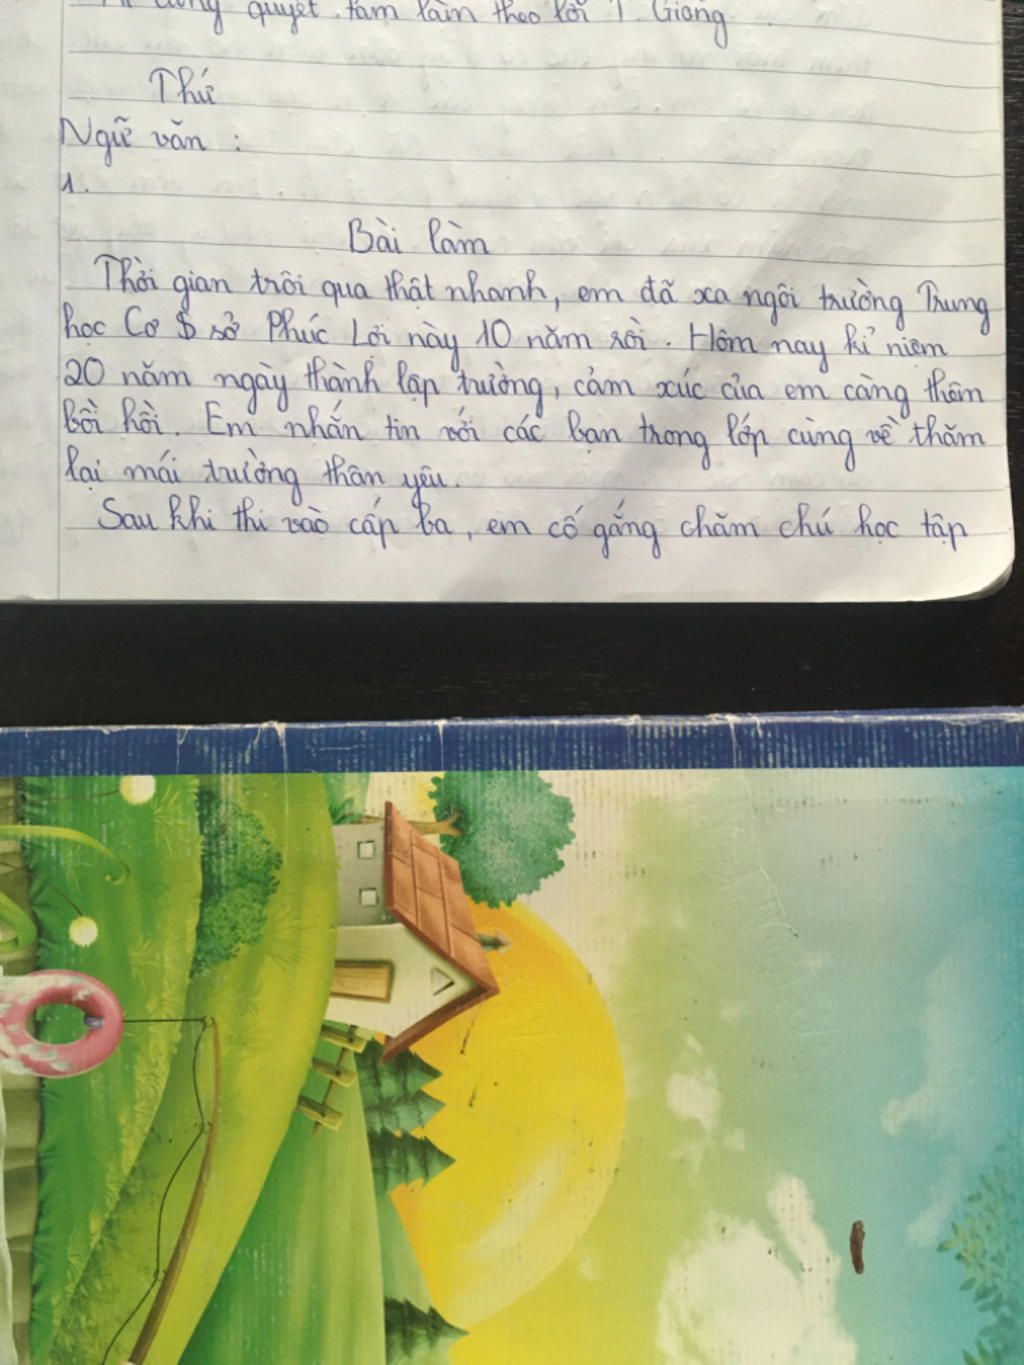 quyết tâm làm theo lời T. Giong
Thứ
Ngữ văn :
1.
Bài làm
Thời gian trôi qua thật nhanh, em đã xa ngôi trường Trung
học Cơ sở Phúc Lợi này 10 năm rồi. Hôm nay kỉ niệm
20 năm ngày thành lập trường, cảm xúc của em càng thêm
bồi hồi. Em nhắn tin với các bạn trong lớp cùng về thăm
lại mái trường thân yêu.
Sau khi thi vào cấp ba, em cố gắng chăm chú học tập